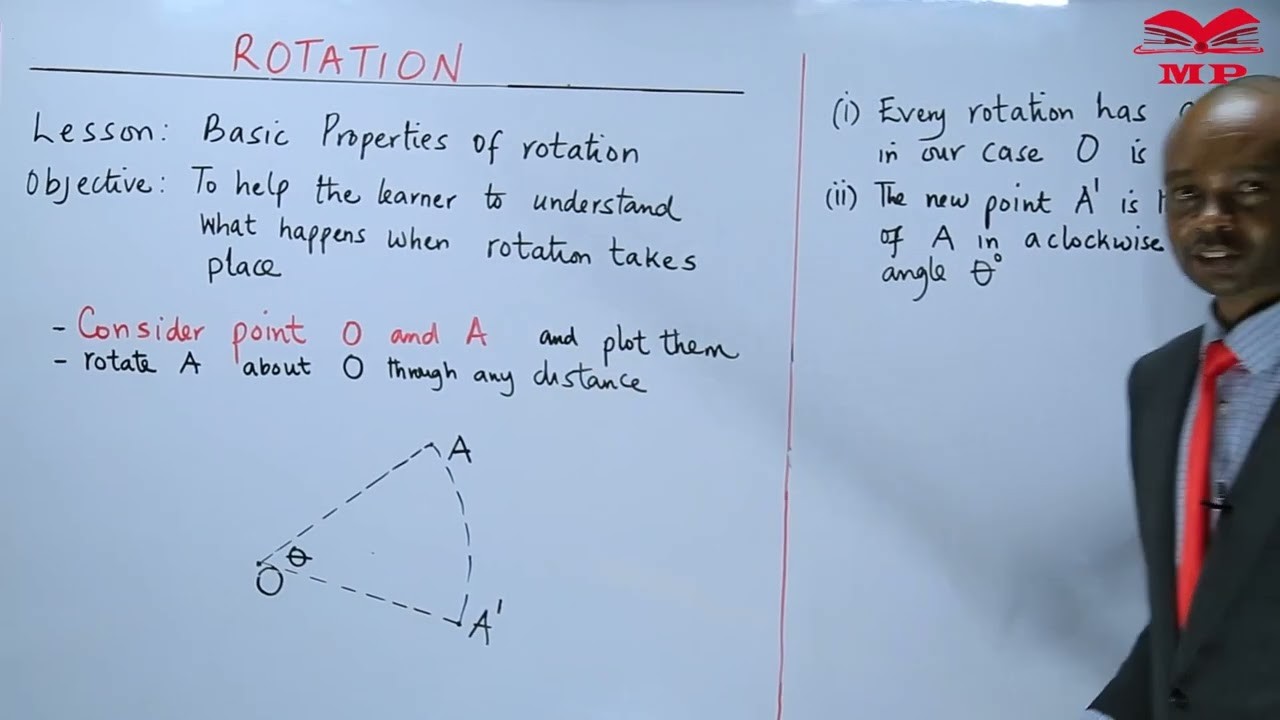 ROTATION
Lesson: Basic Properties of rotation
Objective: To help the learner to understand
what happens when rotation takes
place
- Consider point O and A and plot them
- rotate A about O through any distance
A
θ
O
A'
(i) Every rotation has
in our case O is
(ii) The new point A' is
of A in a clockwise
angle θ°
MP